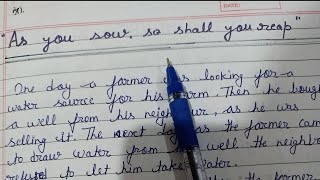 "As you sow, so shall you reap"
One day a farmer was looking for a
water source for his farm. Then he bought
a well from his neighbour, as he was
selling it. The next day as the farmer came
to draw water from well the neighb
refused to let him take water.